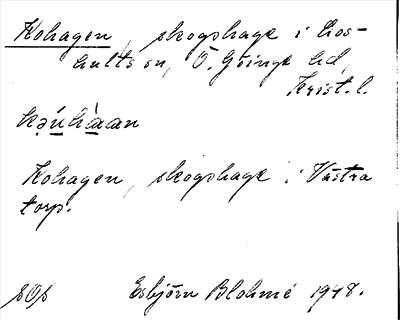 Kohagen, skogshage i Los-
hults sn, Ö. Göinge hd,
Krist. l.
kǝu̲hà̲a̲an
Kohagen, skogshage i Västra
torp.
SOs Esbjörn Blohmé 1948.